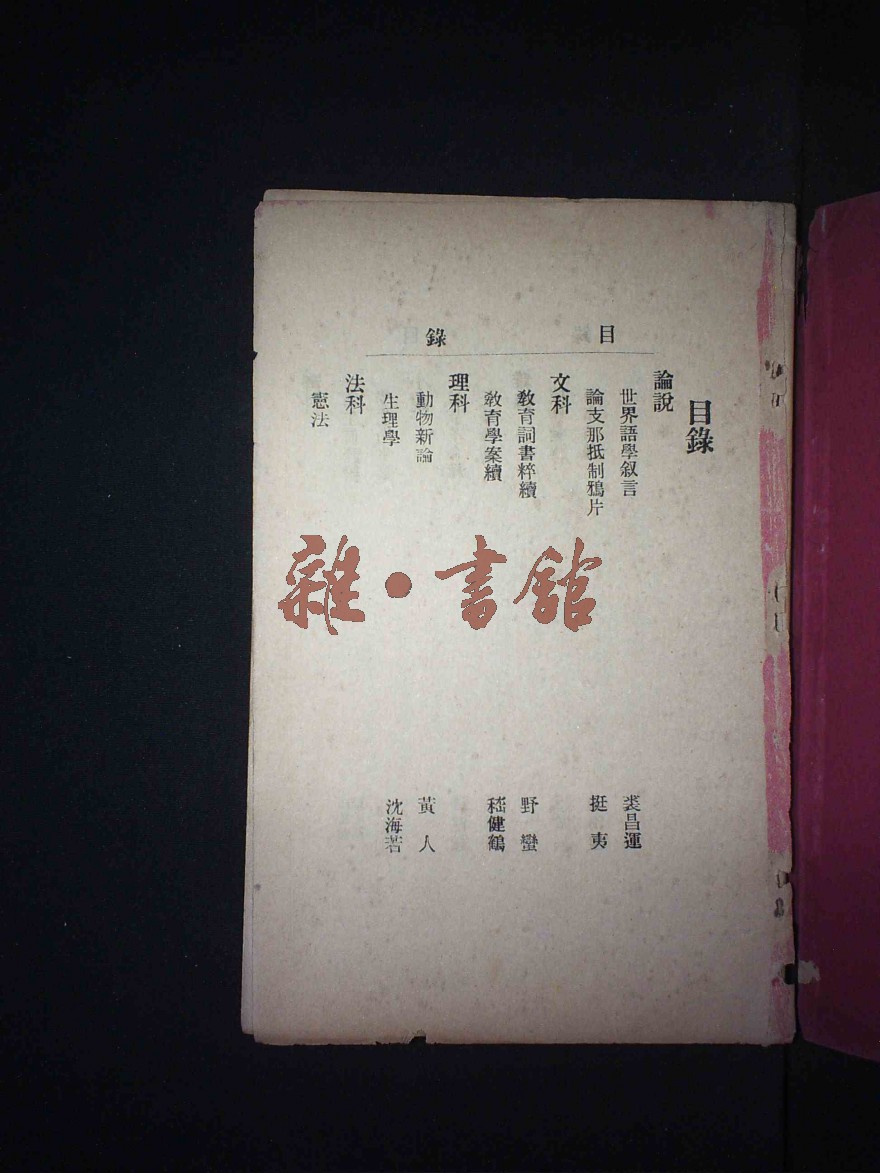 目錄
目 錄
論說
世界語學叙言 裘昌運
論支那抵制鴉片 挺夷
文科
教育詞書粹續 野蠻
教育學案續 嵇健鶴
理科
動物新論 黃人
生理學 沈海若
法科
憲法
雜·書館